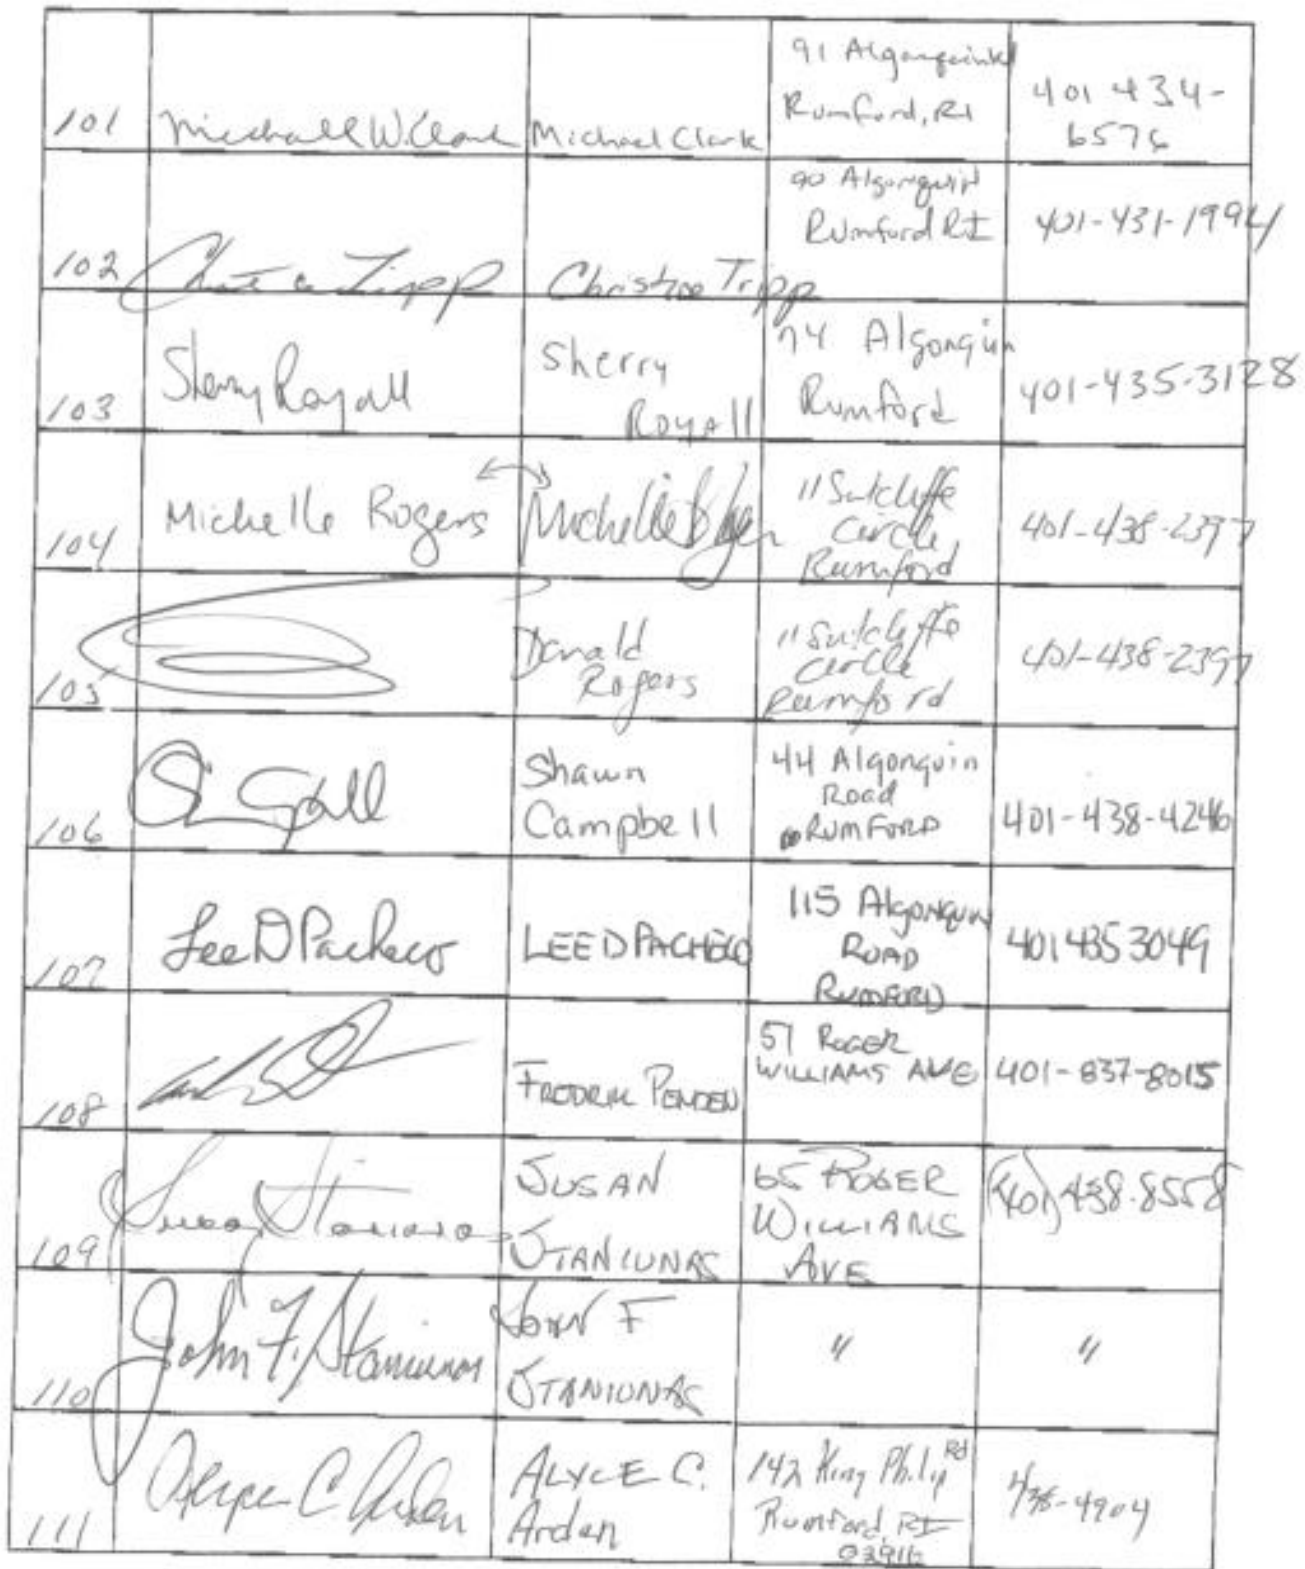 101
Michael W. Clark
Michael Clark
91 Algonquin Rd
Rumford, RI
401 434-
6576
102
Christine Tripp
Christine Tripp
90 Algonquin
Rumford RI
401-431-1994
103
Sherry Royall
Sherry
Royall
74 Algonquin
Rumford
401-435-3128
104
Michelle Rogers
Michelle Rogers
11 Sutcliffe
Circle
Rumford
401-438-2397
105
Donald
Rogers
11 Sutcliffe
Circle
Rumford
401-438-2397
106
Shawn
Campbell
44 Algonquin
Road
RUMFORD
401-438-4246
107
Lee D Pacheco
LEE D PACHECO
115 Algonquin
ROAD
RUMFORD
401 435 3049
108
57 ROGER
WILLIAMS AVE
401-837-8015
109
Susan Staniunas
SUSAN
STANIUNAS
65 ROGER
WILLIAMS
AVE
(401) 438-8558
110
John F. Staniunas
JOHN F
STANIUNAS
"
"
111
Alyce C Arden
ALYCE C.
Arden
142 King Philip Rd
Rumford, RI
438-4904